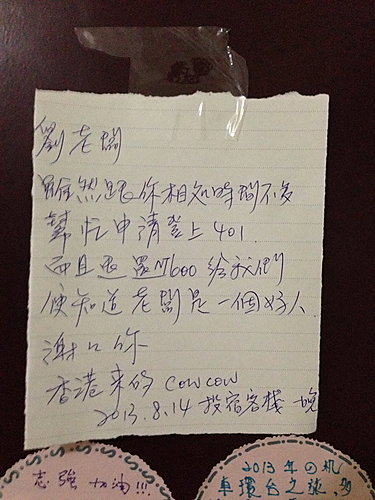 劉老闆
雖然跟你相知時間不多
幫忙申請登上401
而且退還NT600給我們
便知道老闆是一個好人
謝謝你
香港來的 COWCOW
2013.8.14 投宿客棧一晚
志強加油!!!
2013年の机
車環台之旅